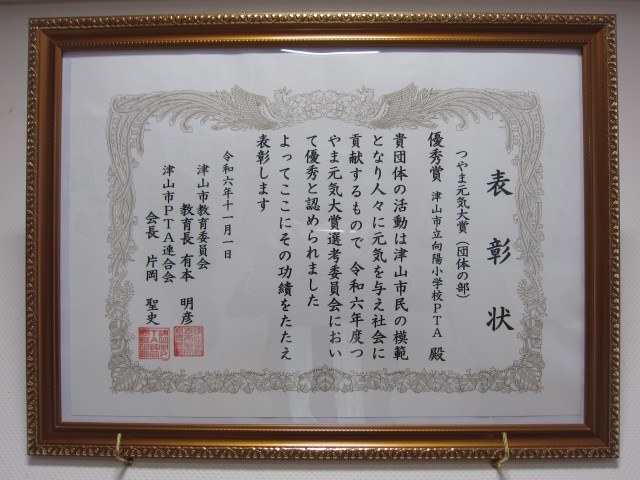 表彰状
つやま元気大賞（団体の部）
優秀賞 津山市立向陽小学校ＰＴＡ 殿
貴団体の活動は津山市民の模範
となり人々に元気を与え社会に
貢献するもので 令和六年度つ
やま元気大賞選考委員会におい
て優秀と認められました
よってここにその功績をたたえ
表彰します
令和六年十一月一日
津山市教育委員会
教育長 有本 明彦
津山市ＰＴＡ連合会
会長 片岡 聖史